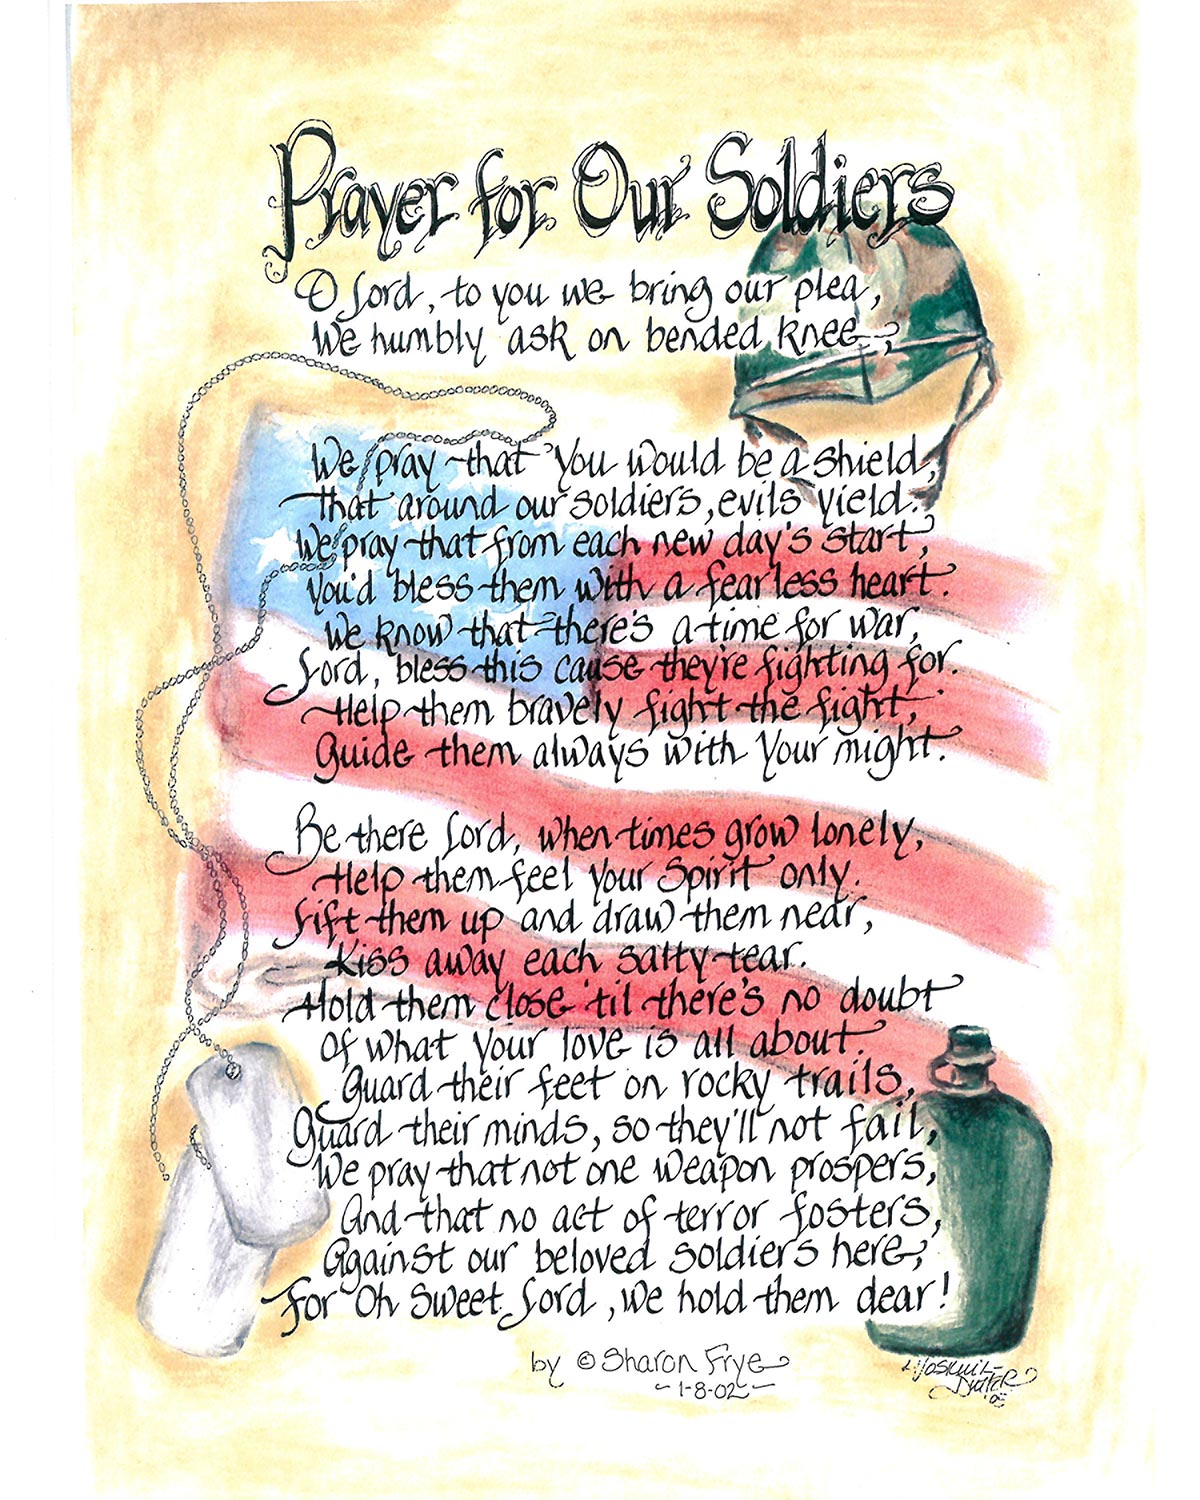 Prayer for Our Soldiers
O Lord, to you we bring our plea,
We humbly ask on bended knee;
We pray that You would be a shield,
That around our soldiers, evils yield.
We pray that from each new day's start,
You'd bless them with a fearless heart.
We know that there's a time for war,
Lord, bless this cause they're fighting for.
Help them bravely fight the fight,
Guide them always with Your might.
Be there Lord, when times grow lonely,
Help them feel Your Spirit only.
Lift them up and draw them near,
Kiss away each salty tear.
Hold them close 'til there's no doubt
Of what Your love is all about.
Guard their feet on rocky trails,
Guard their minds, so they'll not fail,
We pray that not one weapon prospers,
And that no act of terror fosters,
Against our beloved soldiers here;
For Oh Sweet Lord, we hold them dear!
by © Sharon Frye
~ 1-8-02 ~